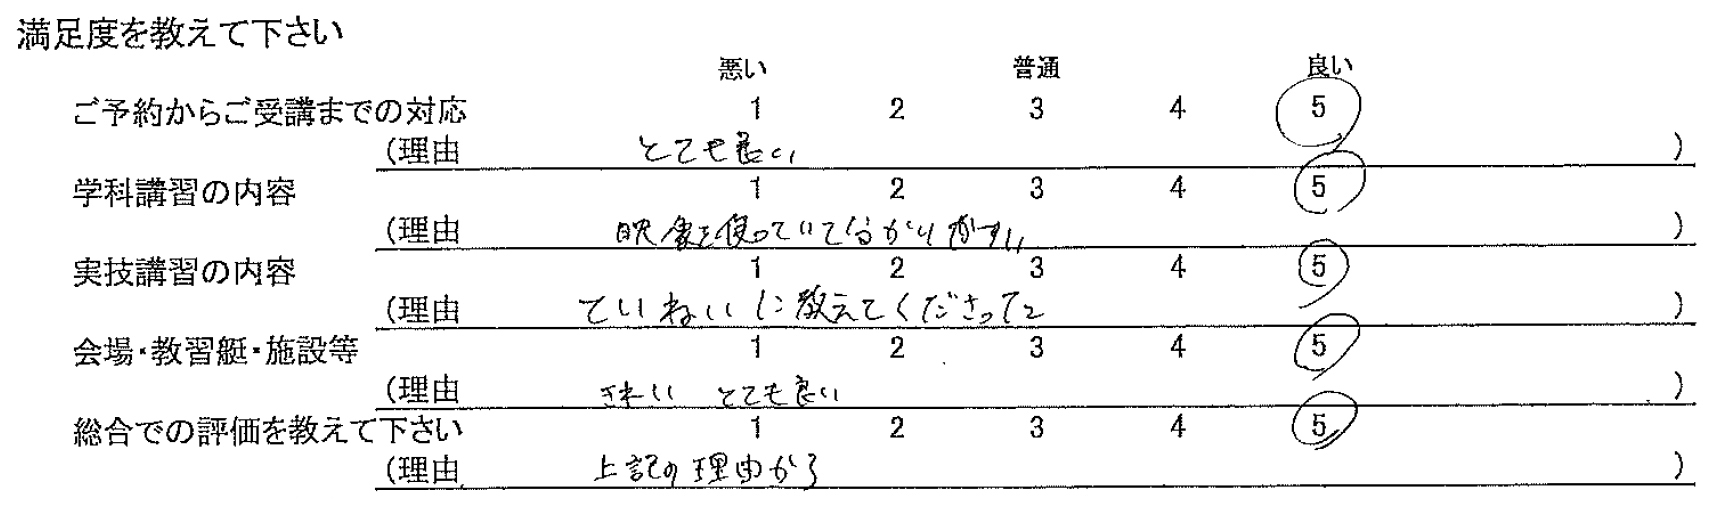 満足度を教えて下さい
悪い 普通 良い
ご予約からご受講までの対応 1 2 3 4 5
(理由 とても良い )
学科講習の内容 1 2 3 4 5
(理由 映像を使っていて分かりやすい )
実技講習の内容 1 2 3 4 5
(理由 ていねいに教えてくださった )
会場・教習艇・施設等 1 2 3 4 5
(理由 きれい とても良い )
総合での評価を教えて下さい 1 2 3 4 5
(理由 上記の理由から )